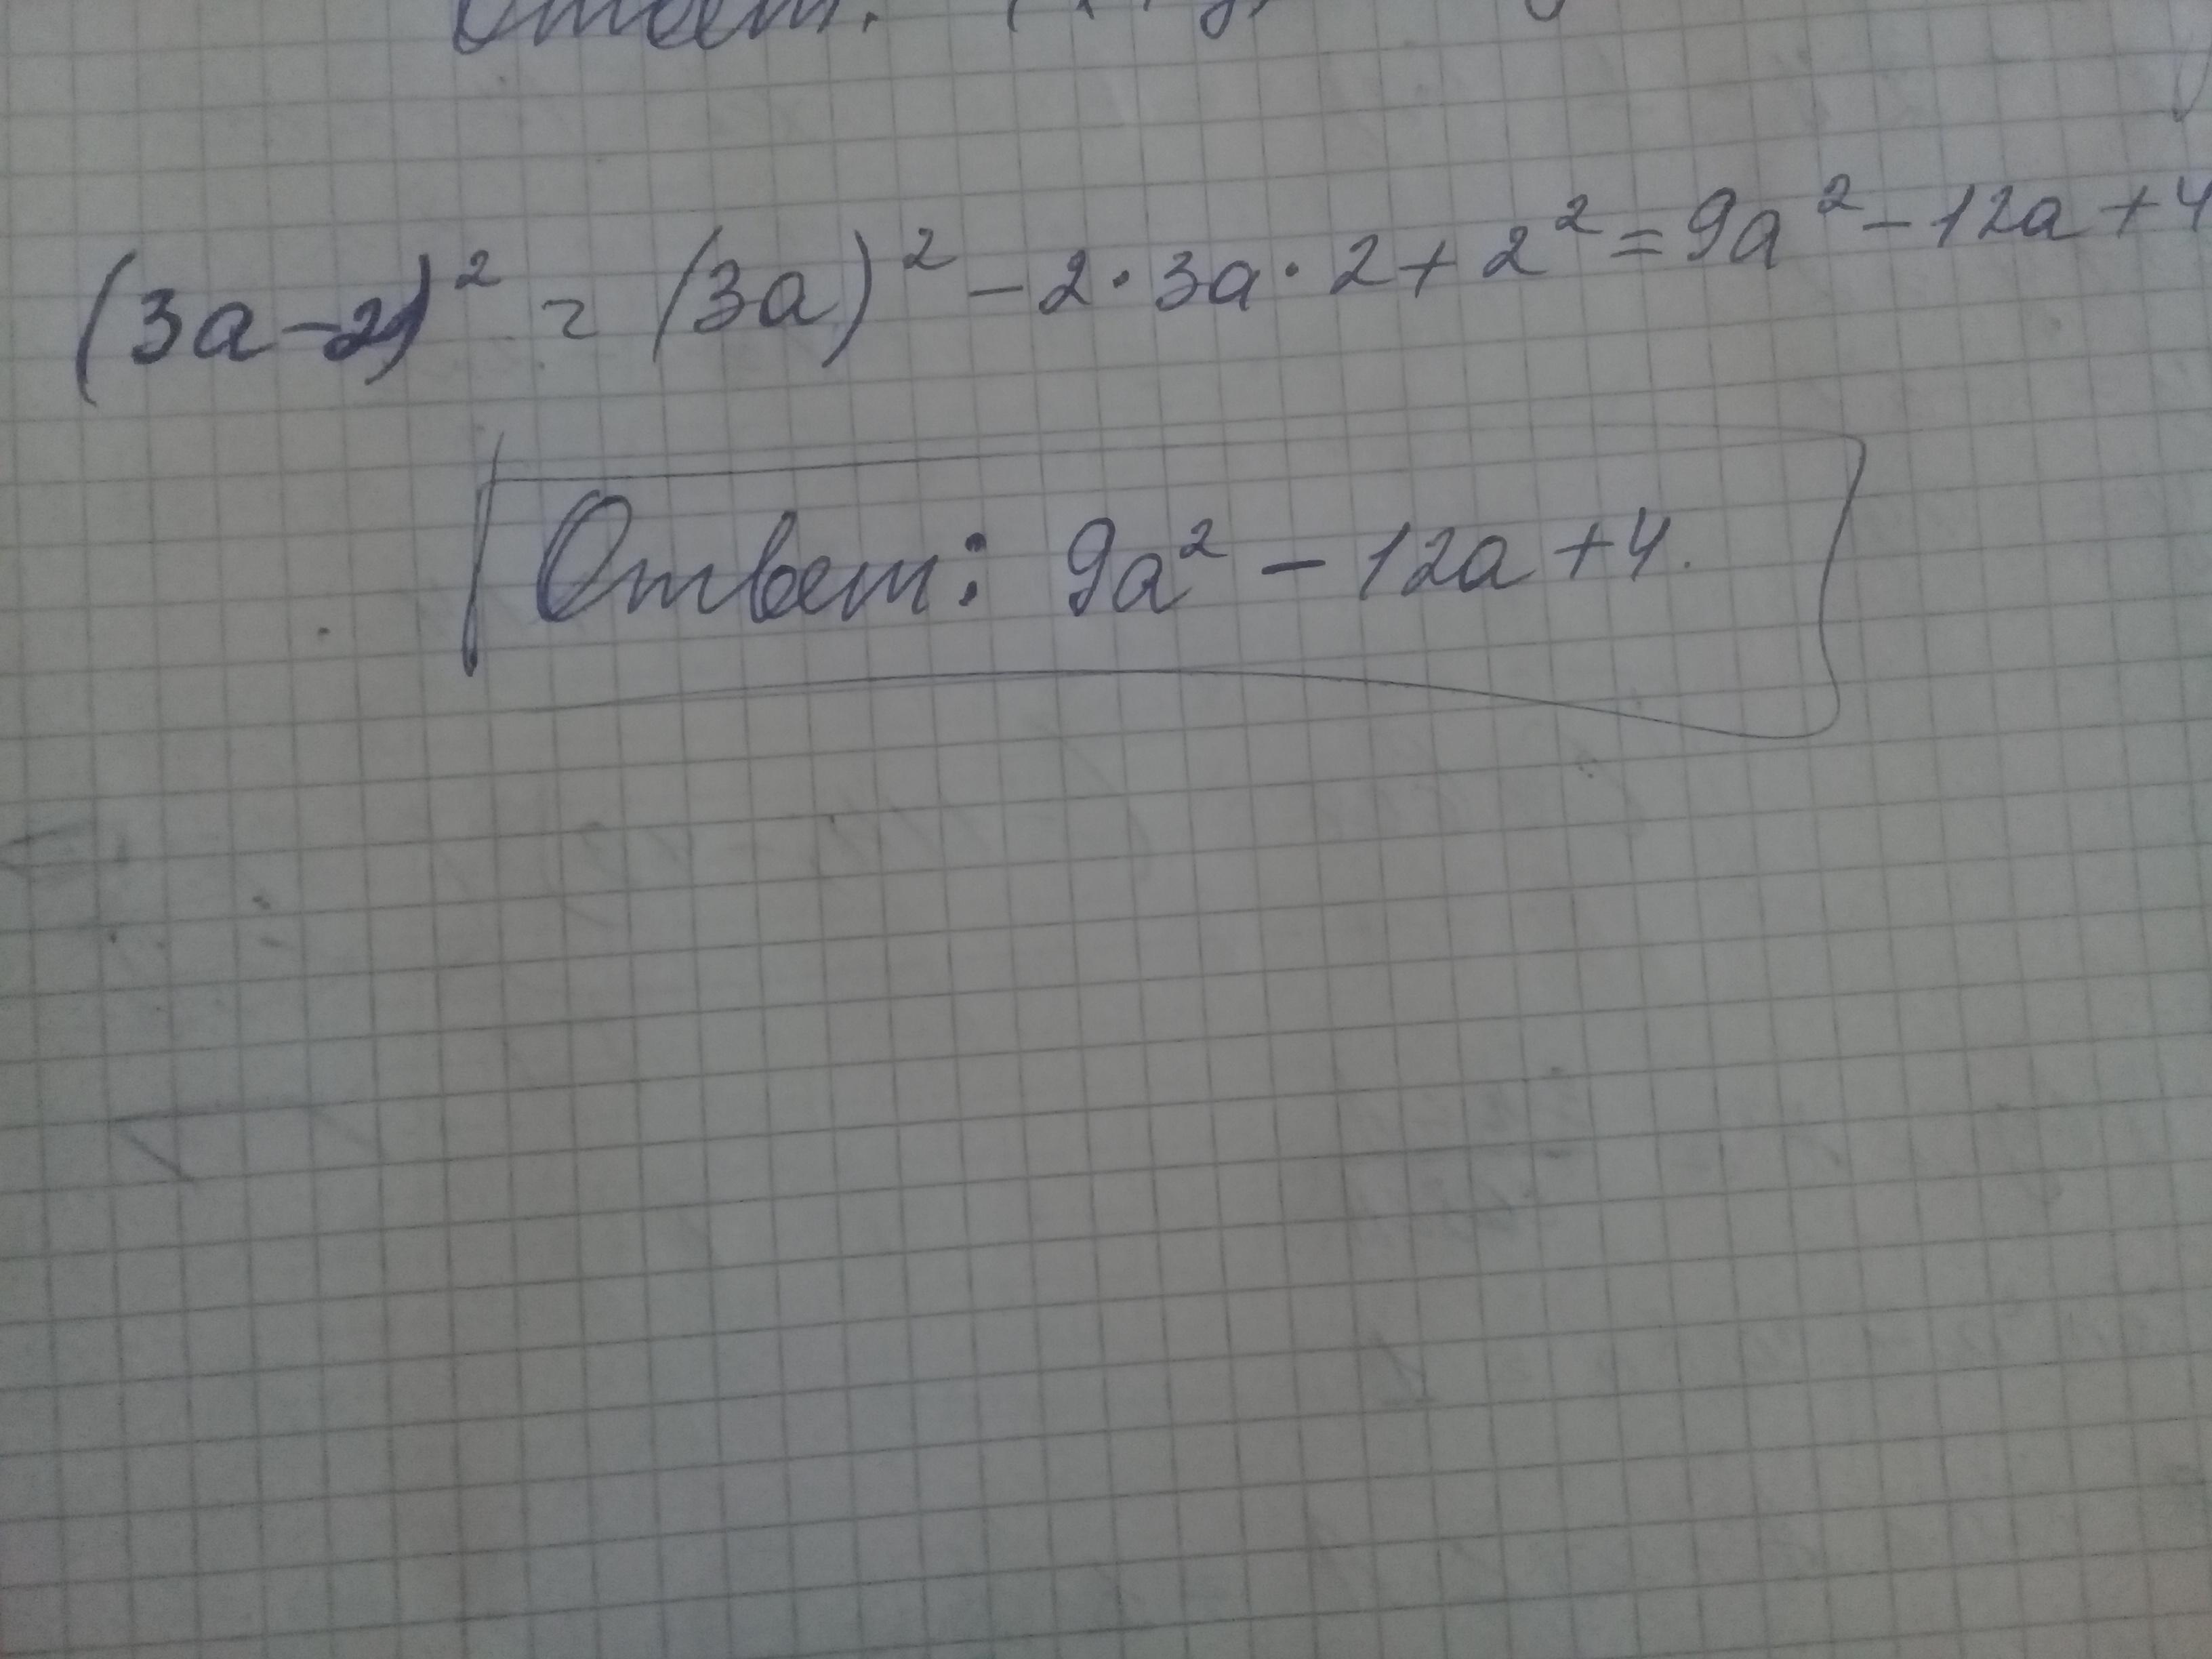 Ответ:
(3a-2)² = (3a)² - 2·3a·2 + 2² = 9a² - 12a + 4
Ответ: 9a² - 12a + 4.